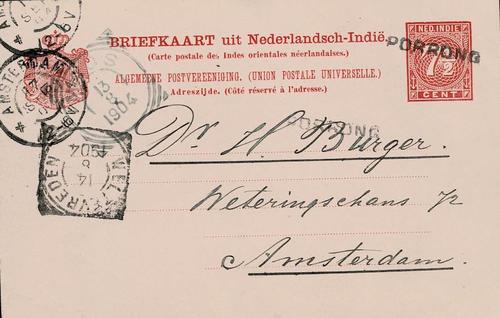 BRIEFKAART uit Nederlandsch-Indië.
(Carte postale des Indes orientales néerlandaises.)
ALGEMEENE POSTVEREENIGING. (UNION POSTALE UNIVERSELLE.)
Adreszijde. (Côté réservé à l'adresse.)
NED. INDIE
7½
CENT
PORRONG
PORRONG
AMSTERDAM
13
8
1904
WELTEVREDEN
14
8
1904
Dr. H. Burger.
Weteringschans 72
Amsterdam.